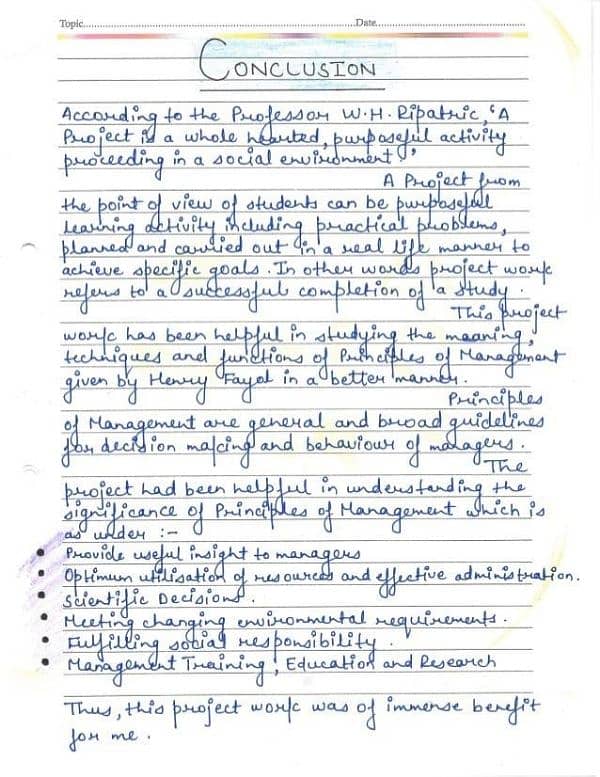 Topic..............................Date..............................
CONCLUSION
According to the Professor W.H. Ripatric, 'A
Project is a whole hearted, purposeful activity
proceeding in a social environment.'
A Project from
the point of view of students can be purposeful
learning activity including practical problems,
planned and carried out in a real life manner to
achieve specific goals. In other words project work
refers to a successful completion of a study.
This project
work has been helpful in studying the meaning,
techniques and functions of Principles of Management
given by Henry Fayol in a better manner.
Principles
of Management are general and broad guidelines
for decision making and behaviour of managers.
The
project had been helpful in understanding the
significance of Principles of Management which is
as under :-
• Provide useful insight to managers
• Optimum utilisation of resources and effective administration.
• Scientific Decisions.
• Meeting changing environmental requirements.
• Fulfilling social responsibility.
• Management Training, Education and Research
Thus, this project work was of immense benefit
for me.